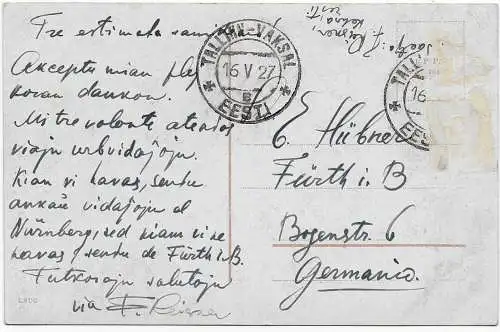 Tre estimata
Akceptu mian plej
koran dankon.
Mi tre volonte atendos
viajn urbvidaĵojn.
Kiam vi havas, sendu
ankaŭ vidaĵojn de
Nürnberg, sed kiam vi ne
havas, sendu de Fürth i.B.
Tutkorajn salutojn
via F.
TALLINN-VAKSAL
16 V 27
EESTI
TALLIN
16
EESTI
E. Hübner
Fürth i. B
Bogenstr. 6
Germanio.